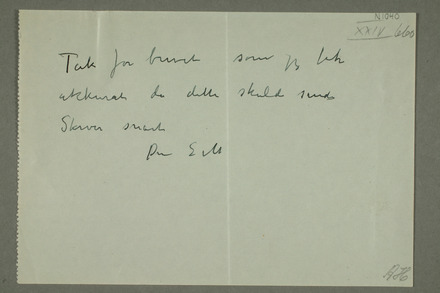 N1040
XXIV/660
Tak for brevet som jeg fik
akkurat da dette skulde sendes
Skriver snart
Din E M